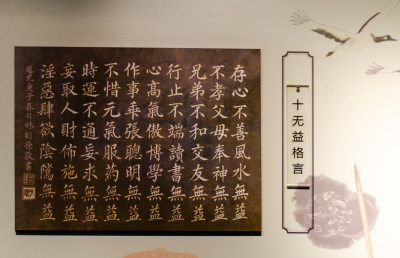 十无益格言
存心不善風水無益
不孝父母奉神無益
兄弟不和交友無益
行止不端讀書無益
心高氣傲博學無益
作事乖張聰明無益
不惜元氣服葯無益
時運不通妄求無益
妄取人財佈施無益
淫惡肆欲陰騭無益
道光庚子春日林則徐敬書